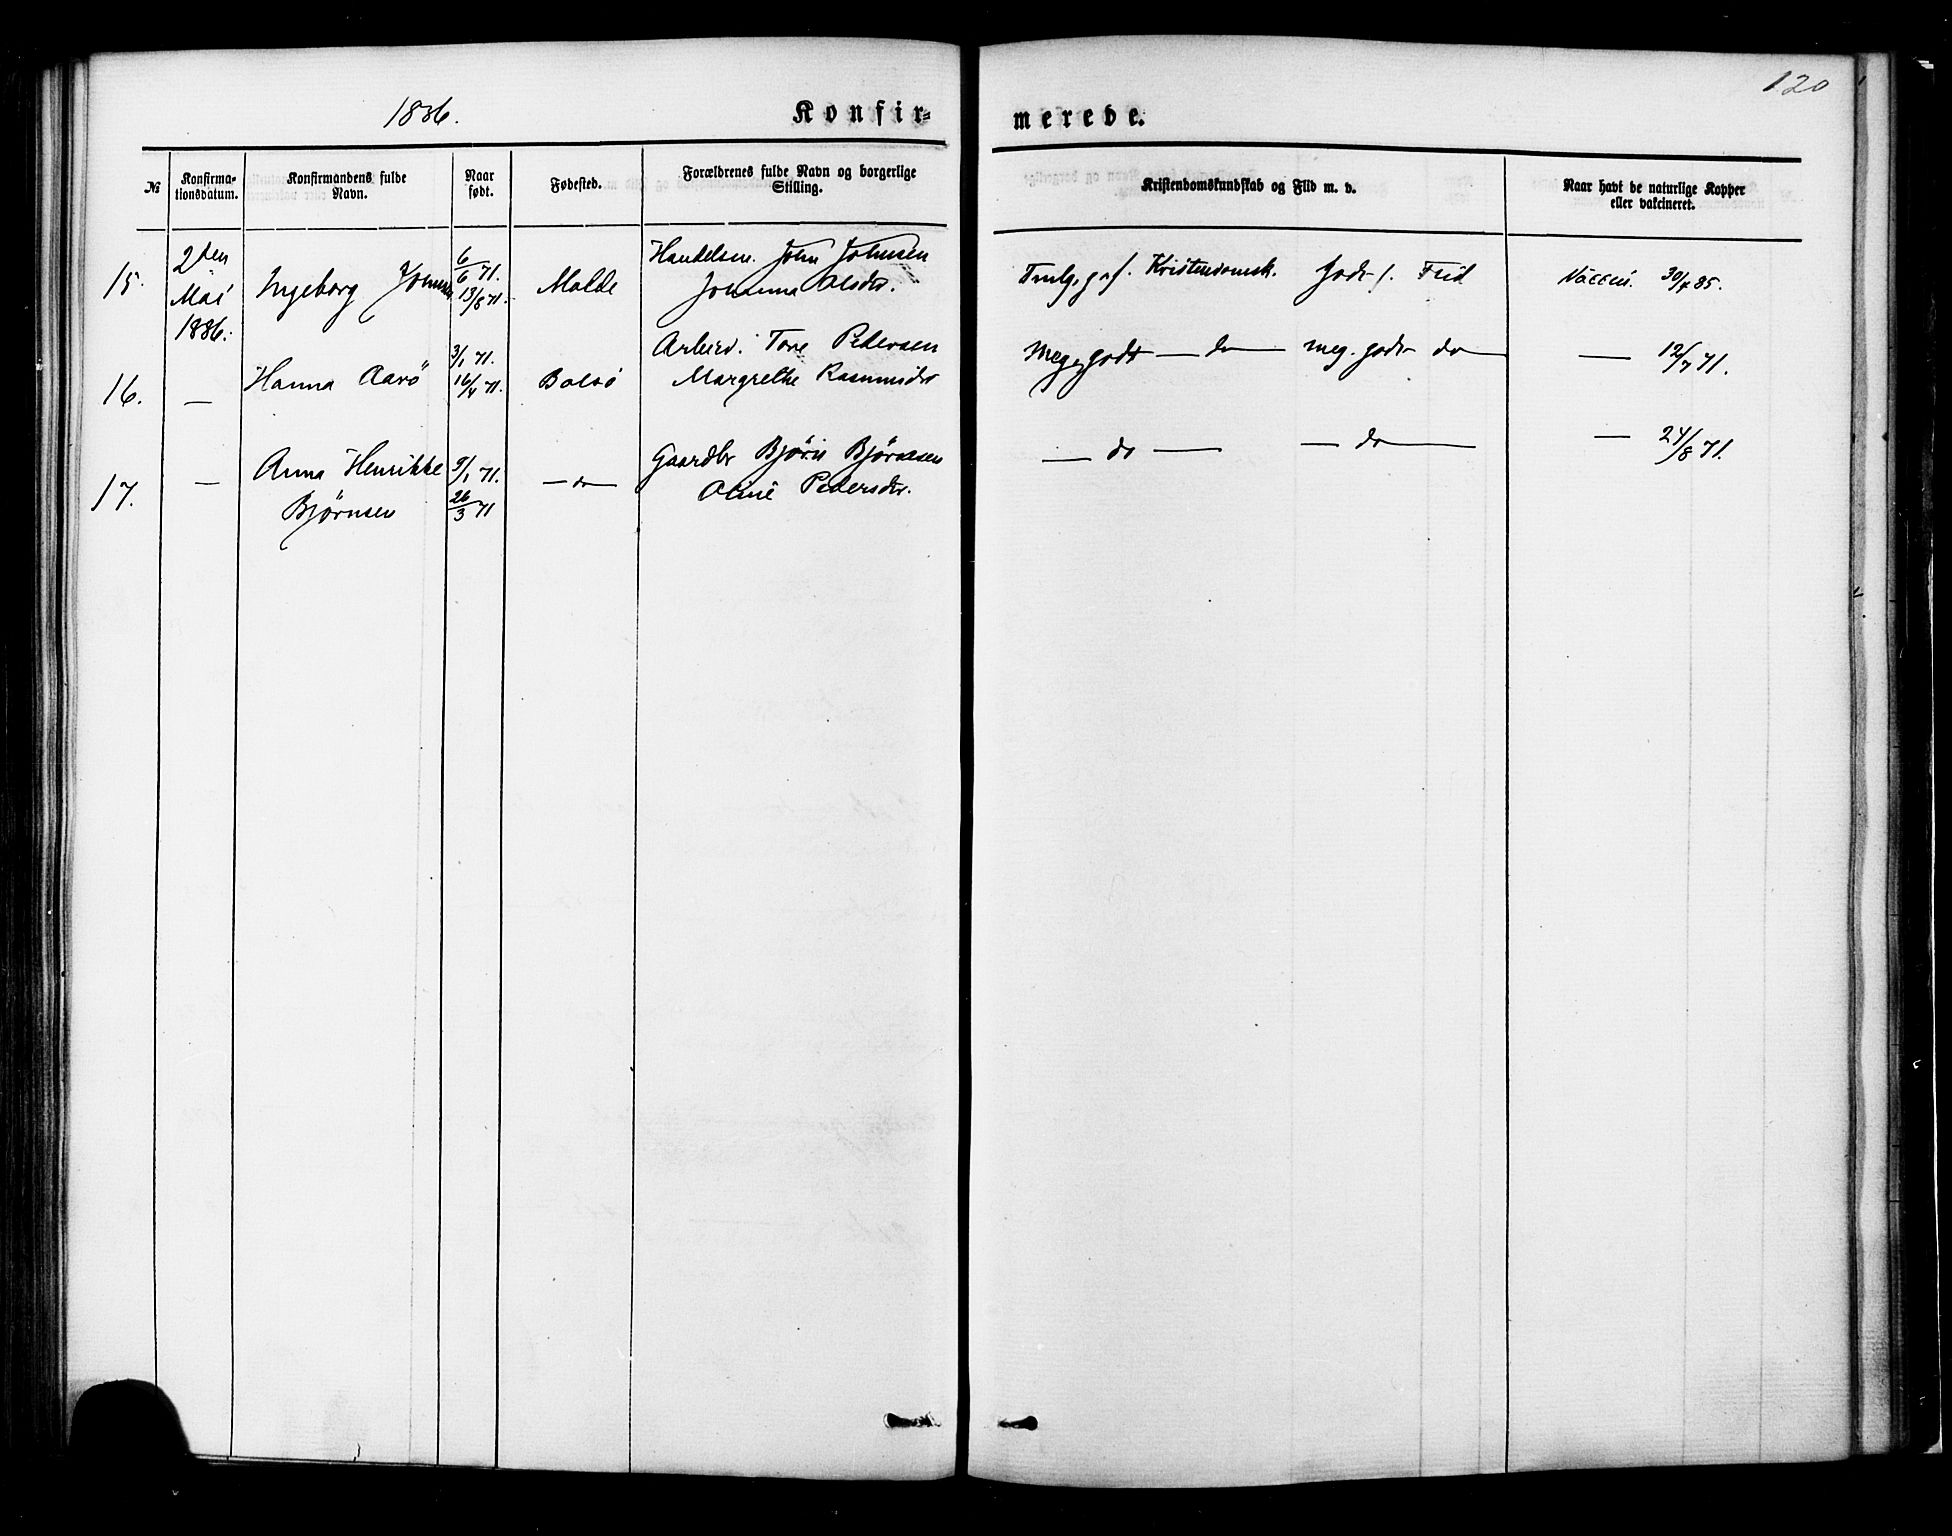 120
1886. Konfir= merede.
№ Konfirma-tionsdatum. Konfirmandens fulde Navn. Naar født. Fødested. Forældrenes fulde Navn og borgerlige Stilling. Kristendomskundskab og Flid m. v. Naar havt de naturlige Kopper eller vakcineret.
15. 2den Mai 1886. Ingeborg Johnsen 6/6 71. 13/8 71. Molde Handelsm. John Johnsen
Johanna Olsdr. Kristendomsk. godt f. Flid Vaccin. 30/4 85.
16. — Hanna Aarö 3/1 71. 16/4 71. Bolsö Arbeid. Tore Pedersen
Margrethe Rasmusdr Meg. godt — do — meg. godt do — — 12/7 71.
17. — Anna Henrikke Bjørnsen 9/1 71. 26/3 71 — do — Gaardbr Bjørn Bjørnsen
Oline Pedersdr. — do — — do — — 24/8 71.